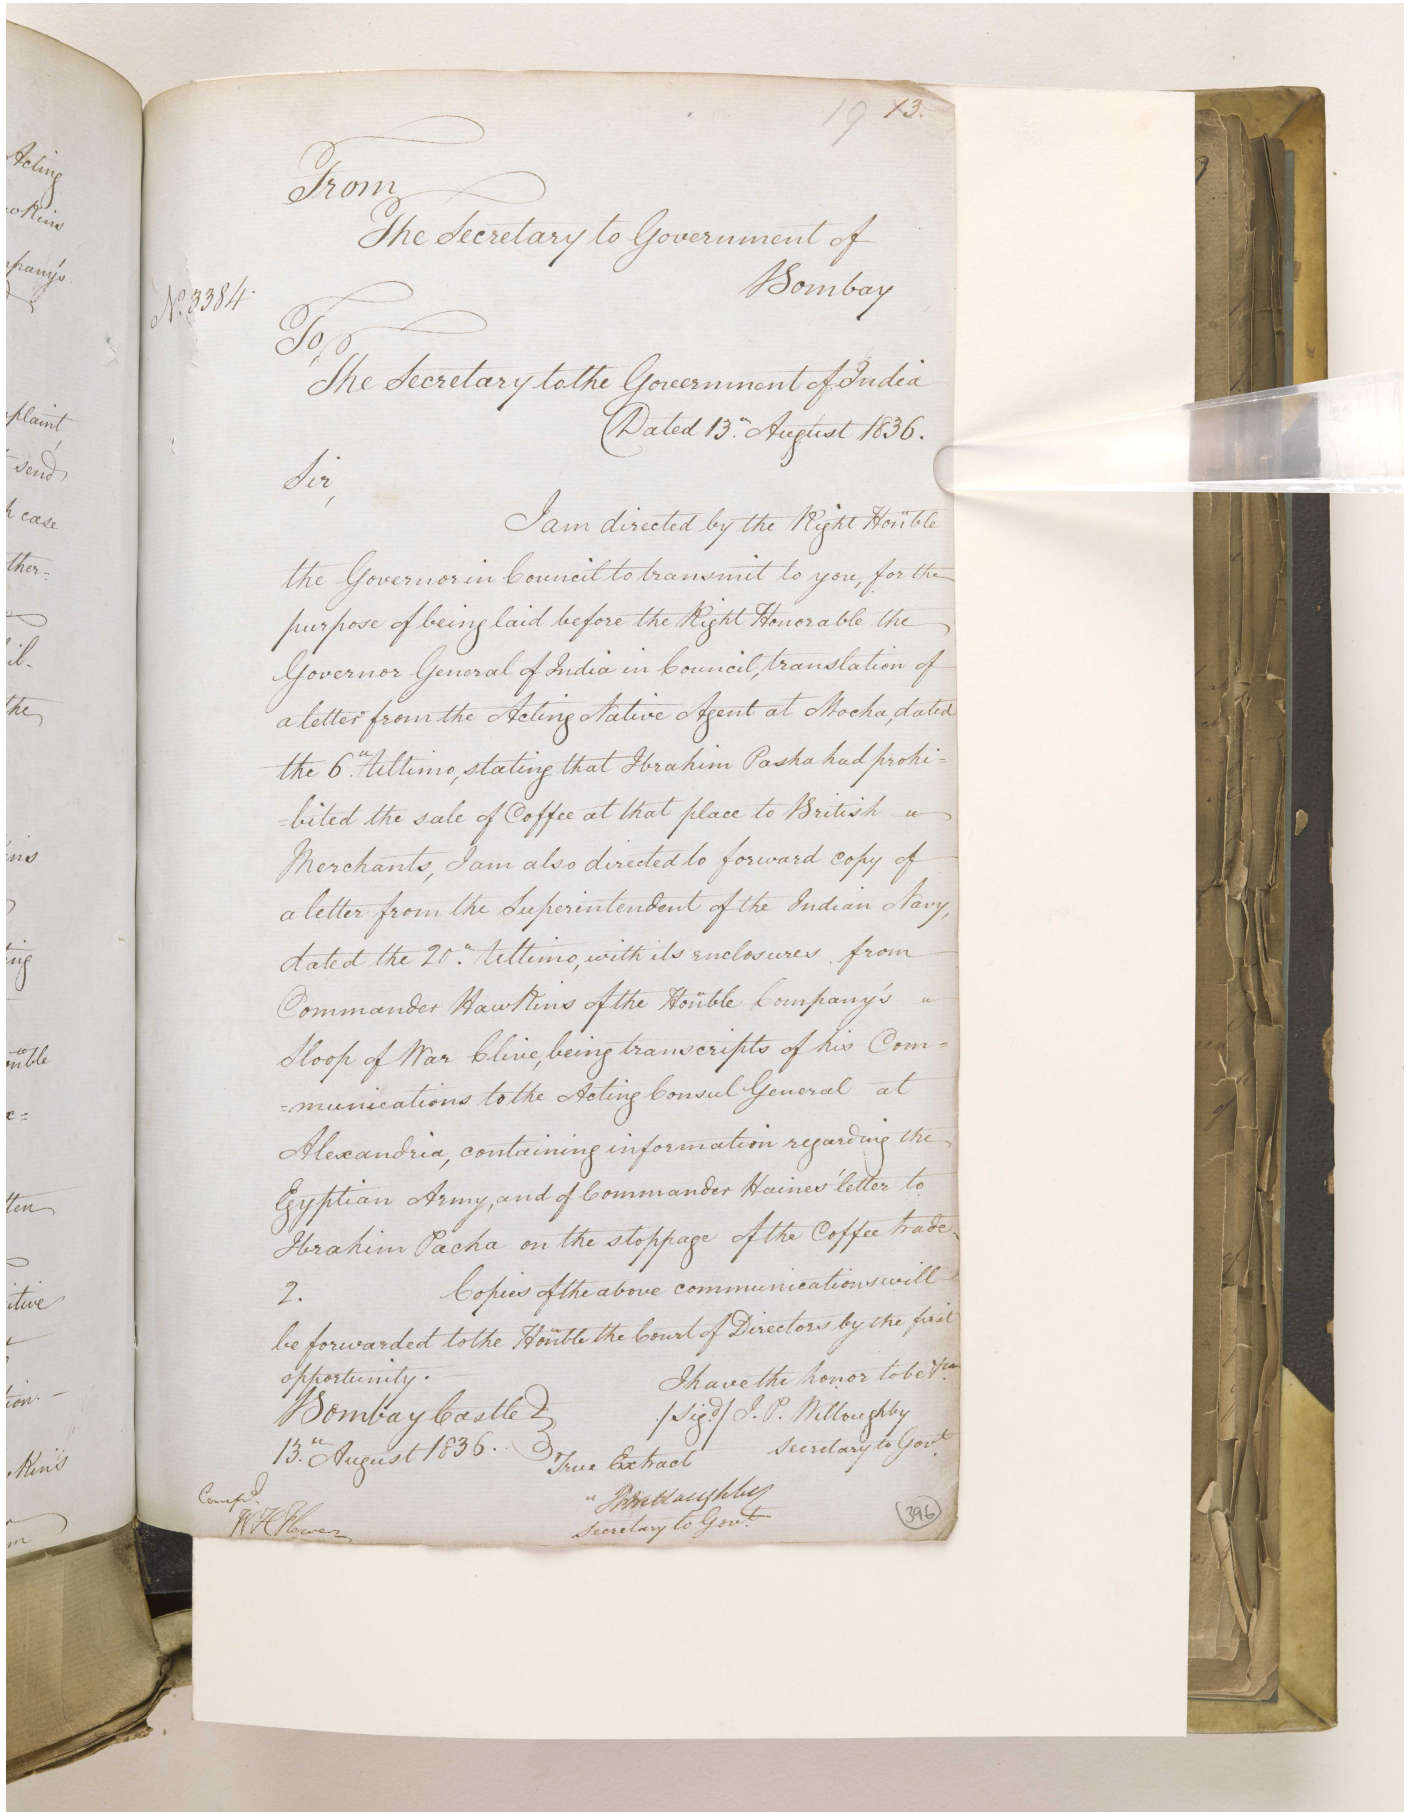 Acting
mpany's
plaint
send
case
ther=
the
ten
itive
tion.
19 13.
From
The Secretary to Government of
Bombay
No. 3384.
To,
The Secretary to the Government of India
Dated 13th. August 1836.
Sir,
I am directed by the Right Honble
the Governor in Council to transmit to you, for the
purpose of being laid before the Right Honorable the
Governor General of India in Council, translation of
a letter from the Acting Native Agent at Mocha, dated
the 6th. Ultimo, stating that Ibrahim Pasha had prohi=
=bited the sale of Coffee at that place to British "
Merchants, I am also directed to forward copy of
a letter from the Superintendent of the Indian Navy,
dated the 20th. Ultimo, with its enclosures from
Commander Hawkins of the Honble Company's "
Sloop of War Clive, being transcripts of his Com=
=munications to the Acting Consul General at
Alexandria, containing information regarding the
Egyptian Army, and of Commander Haines' letter to
Ibrahim Pacha on the stoppage of the Coffee trade.
2. Copies of the above communications will
be forwarded to the Honble the Court of Directors by the first
opportunity.
I have the honor to be &ca.
Bombay Castle
/Sigd/ J. P. Willoughby
13th. August 1836.
Secretary to Govt.
True Extract
" JP Willoughby
Secretary to Govt.
Compd.
W H
396